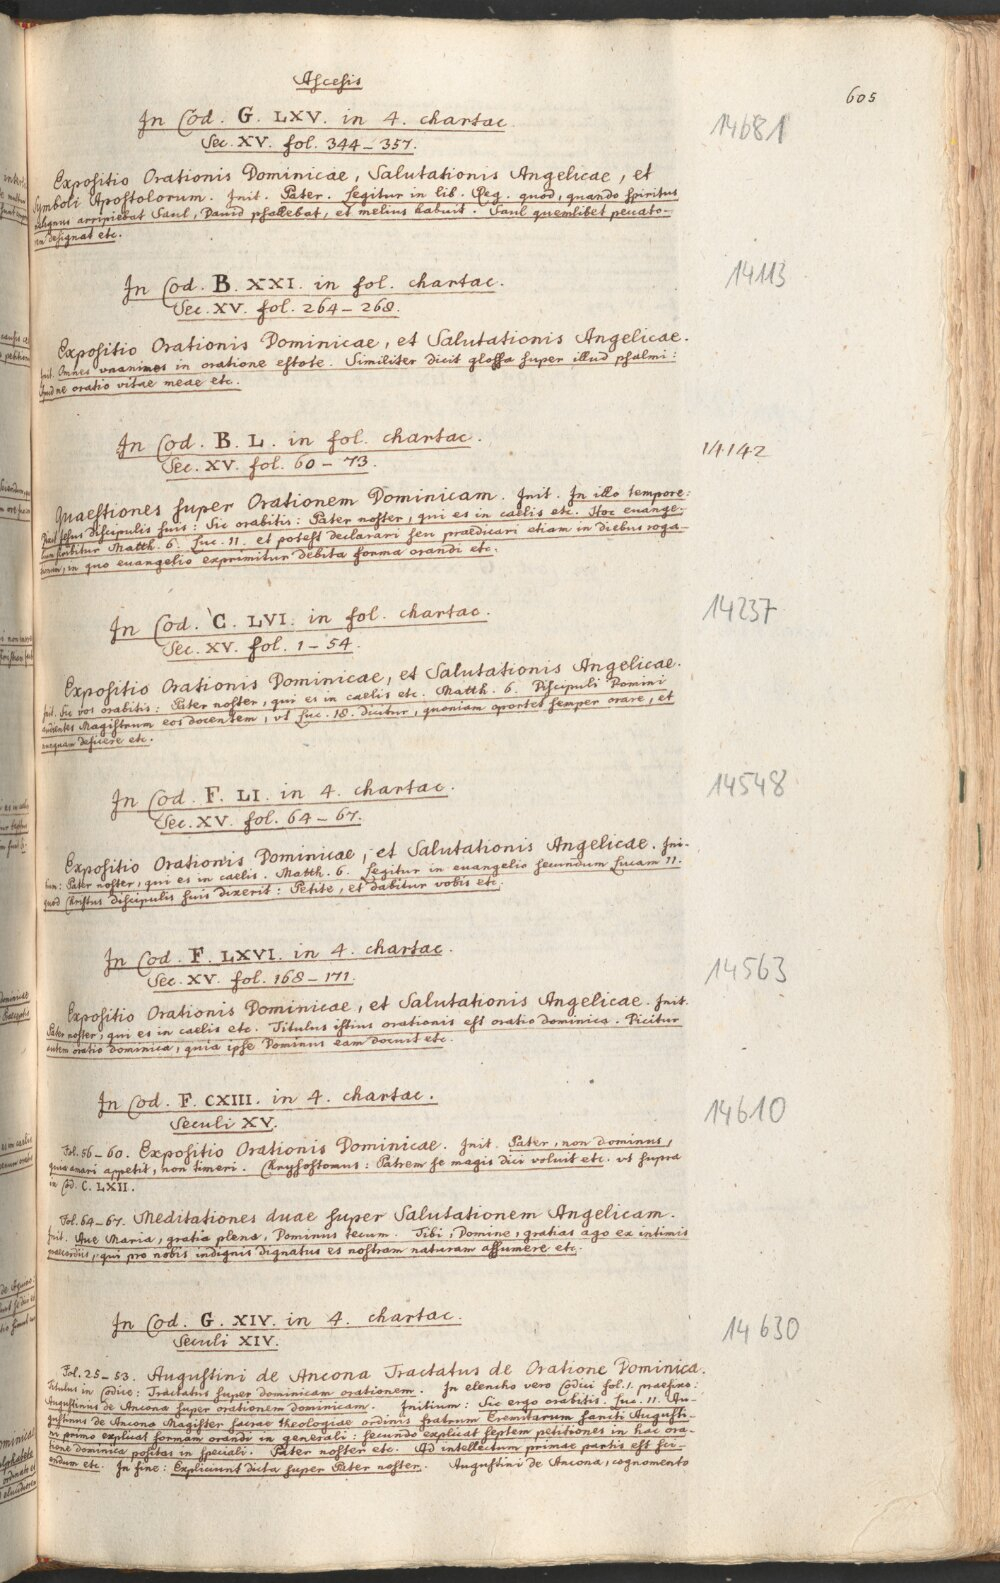 Ascesis
605
In Cod. G. LXV. in 4. chartac.
14681
Sec. XV. fol. 344-357.
Expositio Orationis Dominicae, Salutationis Angelicae, et
Symboli Apostolorum. Init. Pater. Legitur in lib. Reg. quod, quando spiritus
malignus arripiebat Saul, Dauid psallebat, et melius habuit. Saul quemlibet peccato-
rem designat etc.
In Cod. B. XXI. in fol. chartac.
14113
Sec. XV. fol. 264-268.
Expositio Orationis Dominicae, et Salutationis Angelicae.
Init. Omnes vnanimes in oratione estote. Similiter dicit glossa super illud psalmi:
Apud me oratio vitae meae etc.
In Cod. B. L. in fol. chartac.
14142
Sec. XV. fol. 60-73.
Quaestiones super Orationem Dominicam. Init. In illo tempore:
Dixit Jesus discipulis suis: Sic orabitis: Pater noster, qui es in caelis etc. Hoc euange-
lium scribitur Matth. 6. Luc. 11. et potest declarari seu praedicari etiam in diebus roga-
tionum, in quo euangelio exprimitur debita forma orandi etc.
In Cod. C. LVI. in fol. chartac.
14237
Sec. XV. fol. 1-54.
Expositio Orationis Dominicae, et Salutationis Angelicae.
Init. Sic vos orabitis: Pater noster, qui es in caelis etc. Matth. 6. Discipuli Domini
audientes Magistrum eos docentem, vt Luc. 18. dicitur, quoniam oportet semper orare, et
nunquam deficere etc.
In Cod. F. LI. in 4. chartac.
14548
Sec. XV. fol. 64-67.
Expositio Orationis Dominicae, et Salutationis Angelicae. Ini-
tium: Pater noster, qui es in caelis. Matth. 6. Legitur in euangelio secundum Lucam 11.
quod Christus discipulis suis dixerit: Petite, et dabitur vobis etc.
In Cod. F. LXVI. in 4. chartac.
14563
Sec. XV. fol. 168-171.
Expositio Orationis Dominicae, et Salutationis Angelicae. Init.
Pater noster, qui es in caelis etc. Titulus istius orationis est oratio dominica. Dicitur
autem oratio dominica, quia ipse Dominus eam docuit etc.
In Cod. F. CXIII. in 4. chartac.
14610
Seculi XV.
Fol. 56-60. Expositio Orationis Dominicae. Init. Pater, non dominus,
quia amari appetit, non timeri. Chrysostomus: Patrem se magis dici voluit etc. vt supra
in Cod. C. LXII.
Fol. 64-67. Meditationes duae super Salutationem Angelicam.
Init. Aue Maria, gratia plena, Dominus tecum. Tibi, Domine, gratias ago ex intimis
praecordiis, qui pro nobis indignis dignatus es nostram naturam assumere etc.
In Cod. G. XIV. in 4. chartac.
14630
Seculi XIV.
Fol. 25-53. Augustini de Ancona Tractatus de Oratione Dominica.
Titulus in Codice: Tractatus super dominicam orationem. In elencho vero Codici fol. 1. praefixo:
Augustinus de Ancona super orationem dominicam. Initium: Sic ergo orabitis. Luc. 11. Au-
gustinus de Ancona Magister sacrae theologiae ordinis fratrum Eremitarum sancti Augusti-
ni primo explicat formam orandi in generali: secundo explicat septem petitiones in hac ora-
tione dominica positas in speciali. Pater noster etc. Ad intellectum primae partis est sci-
endum etc. In fine: Expliciunt dicta super Pater noster. Augustini de Ancona, cognomento